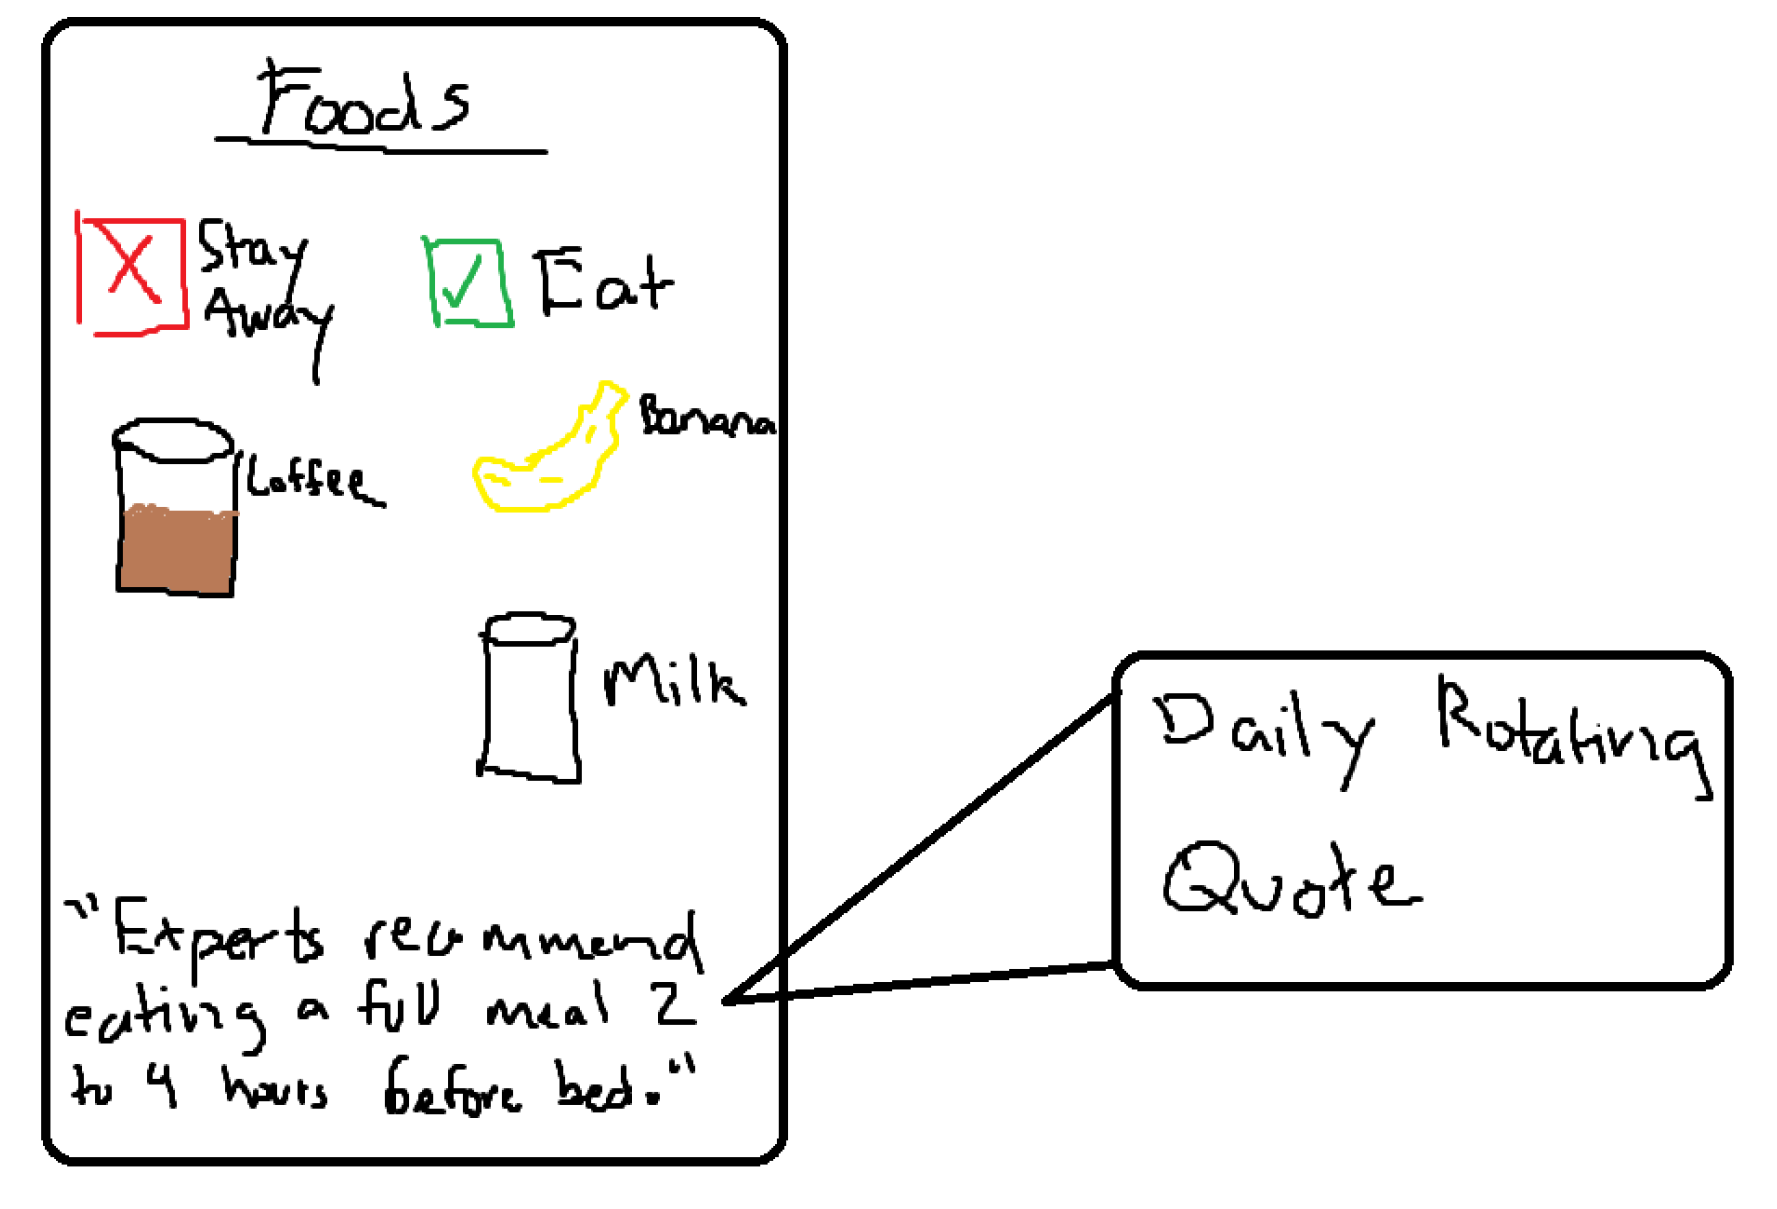 Foods
Stay
Away
Eat
Coffee
Banana
Milk
"Experts recommend
eating a full meal 2
to 4 hours before bed."
Daily Rotating
Quote